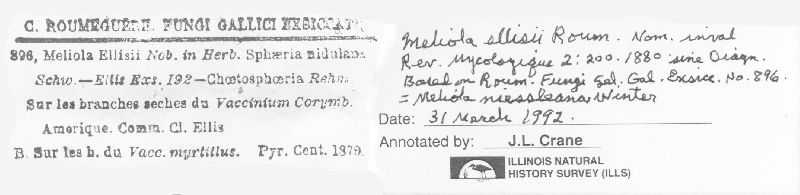 C. ROUMEGUÈRE. FUNGI GALLICI EXSICCATI
896, Meliola Ellisii Nob. in Herb. Sphæria nidulans
Schw.—Ellis Exs. 192—Chœtosphœria Rehm.
Sur les branches seches du Vaccinium Corymb.
Amerique. Comm. Cl. Ellis
B. Sur les b. du Vacc. myrtillus. Pyr. Cent. 1879.
Meliola ellisii Roum. Nom. inval
Rev. Mycologique 2: 200. 1880 sine Diagn.
Based on Roum. Fungi Gal. Exsicc. No. 896.
= Meliola niessleana Winter
Date: 31 March 1992.
Annotated by: J.L. Crane
ILLINOIS NATURAL
HISTORY SURVEY (ILLS)